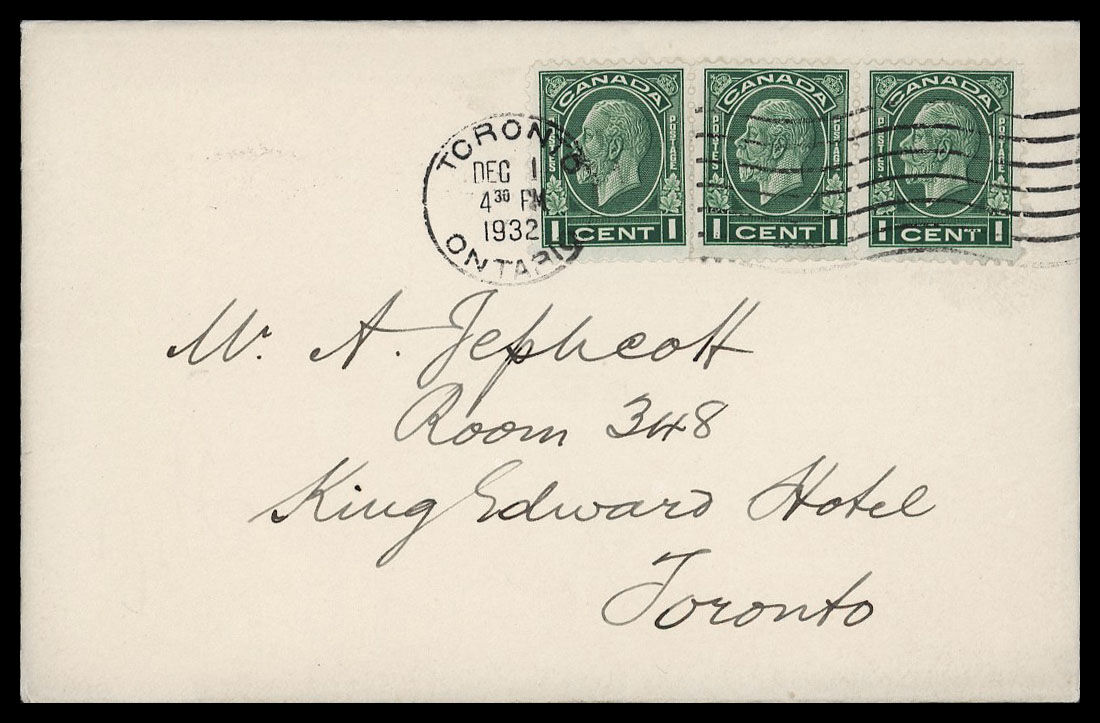 CANADA CANADA CANADA
POSTES POSTAGE POSTES POSTAGE POSTES POSTAGE
1 CENT 1 1 CENT 1 1 CENT 1
TORONTO
DEC 1
4 30 PM
1932
ONTARIO
Mr. A. Jephcott
Room 348
King Edward Hotel
Toronto